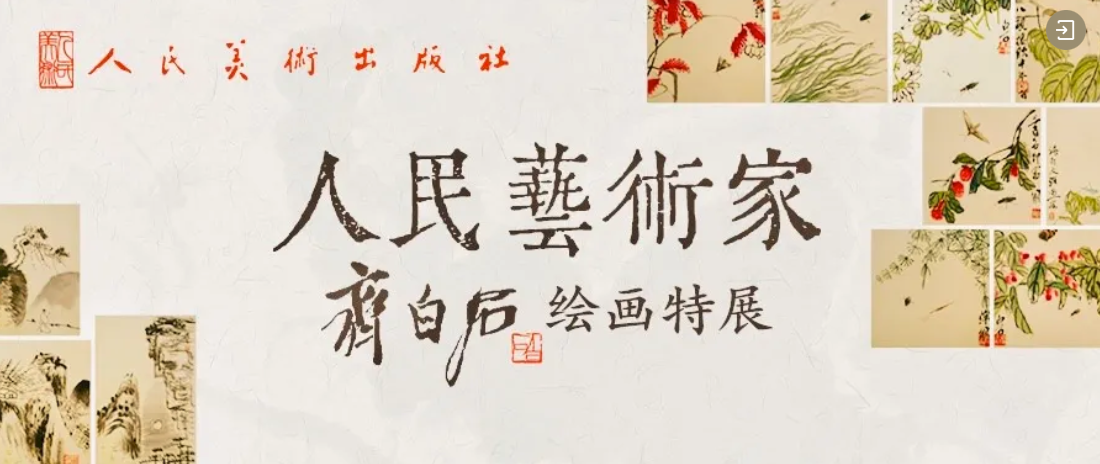 人民美術出版社
人民藝術家
齊白石 绘画特展